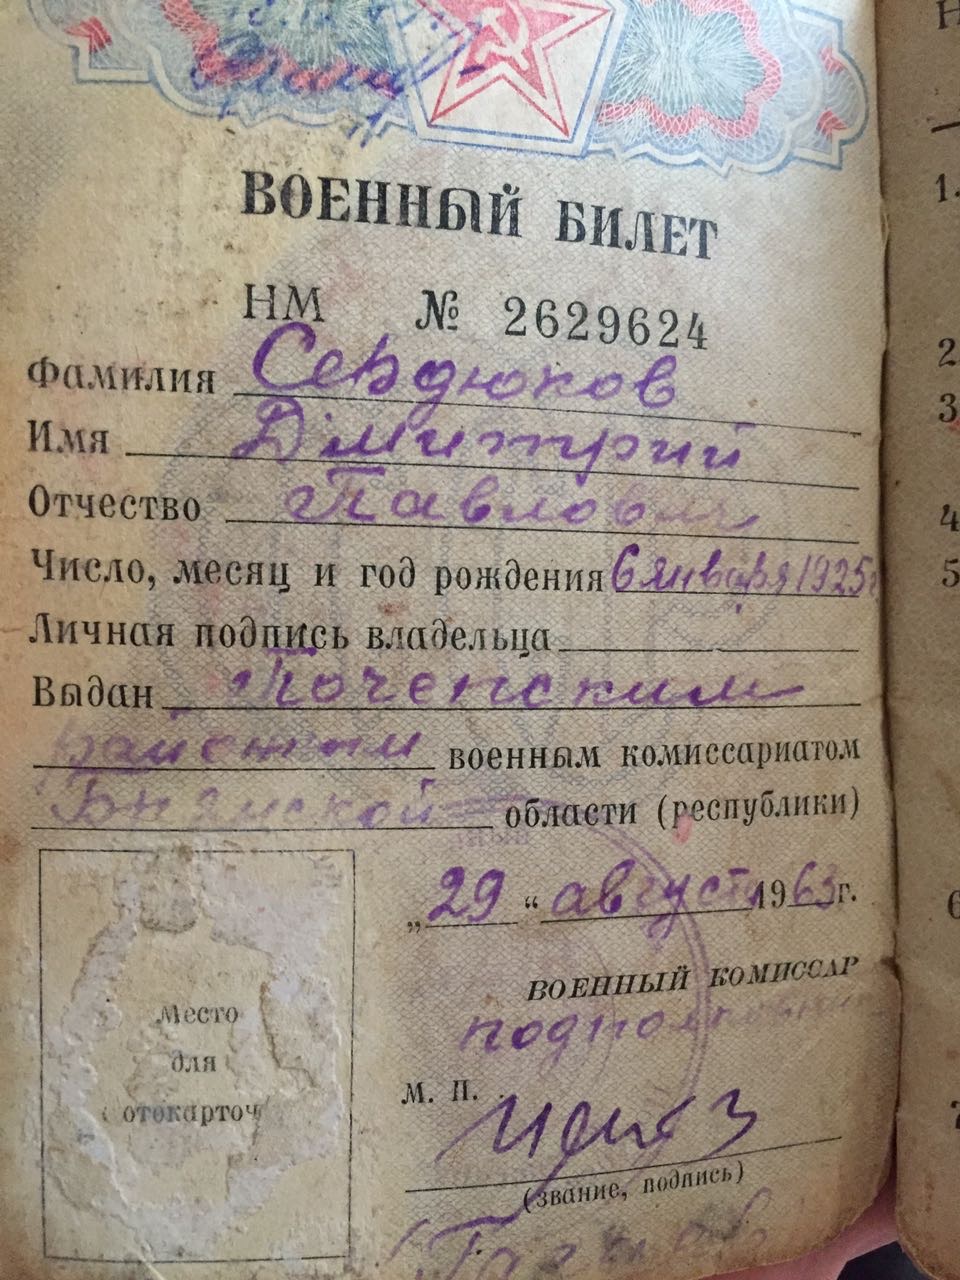 ВОЕННЫЙ БИЛЕТ
НМ № 2629624
Фамилия Сердюков
Имя Дмитрий
Отчество Павлович
Число, месяц и год рождения 6 января 1925 г
Личная подпись владельца
Выдан Почепским
районным военным комиссариатом
Брянской области (республики)
„29“ август 1963 г.
ВОЕННЫЙ КОМИССАР
подполковник
Место
для
фотокарточ
М. П.
(звание, подпись)
1.
2.
3
4
5
6